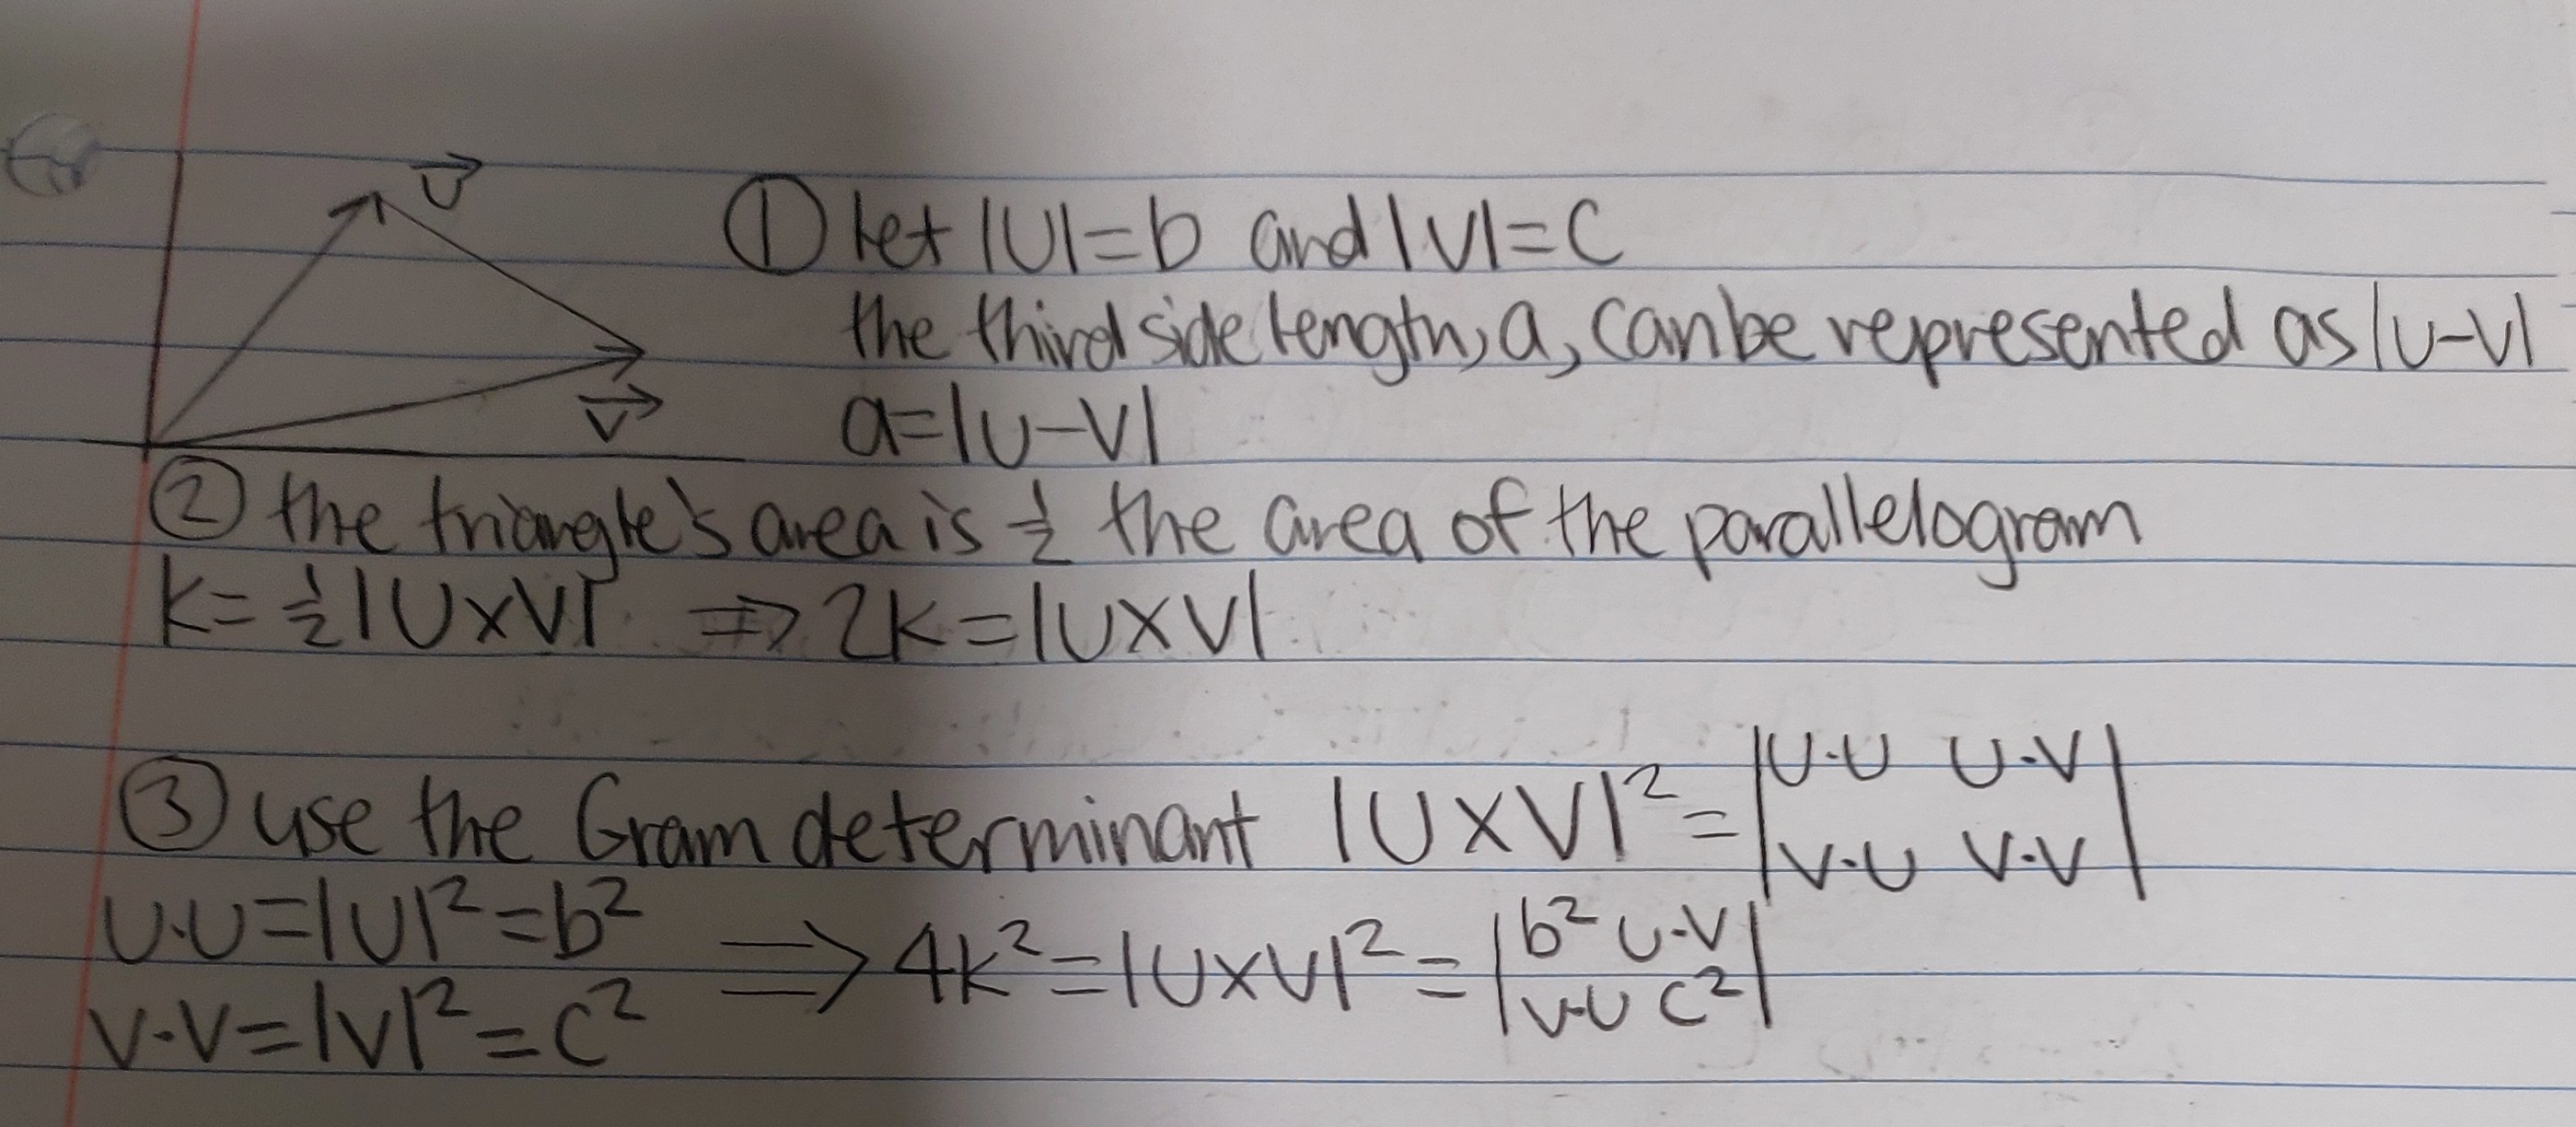 U⃗
① let |U|=b and |V|=C
the third side length, a, can be represented as |U-V|
V⃗
a=|U-V|
② the triangle's area is ½ the area of the parallelogram
K=½|U×V| ⇒ 2K=|U×V|
③ use the Gram determinant |U×V|²=|U·U U·V|
|V·U V·V|
U·U=|U|²=b²
⇒ 4K²=|U×V|²=|b² U·V|
|V·U C²|
V·V=|V|²=C²